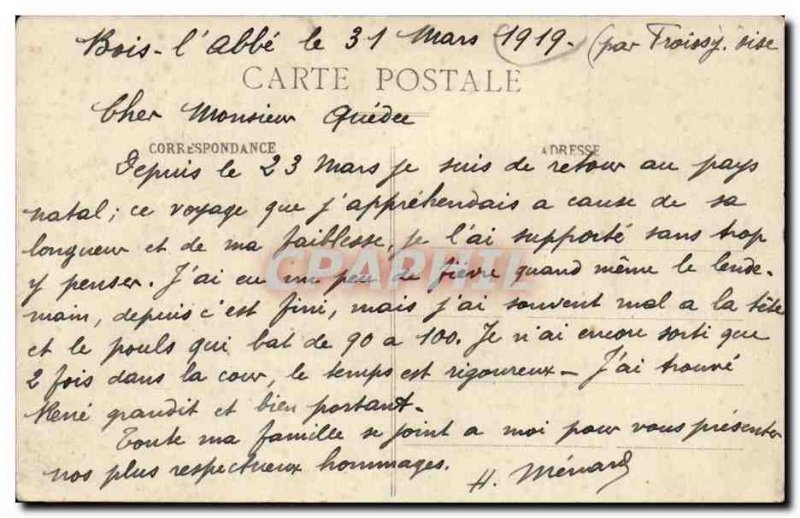 Bois-l'Abbé le 31 Mars 1919. (par Troissy.
CARTE POSTALE
Cher Monsieur Quédec
CORRESPONDANCE
ADRESSE
Depuis le 23 Mars je suis de retour au pays
natal; ce voyage que j'appréhendais a cause de sa
longueur et de ma faiblesse, je l'ai supporté sans trop
y penser. J'ai eu un peu de fièvre quand même le lende-
main, depuis c'est fini, mais j'ai souvent mal a la tête
et le pouls qui bat de 90 a 100. Je n'ai encore sorti que
2 fois dans la cour, le temps est rigoureux - J'ai trouvé
René grandit et bien portant.
Toute ma famille se joint a moi pour vous présenter
nos plus respectueux hommages.
H. Ménard
CPAPHIL